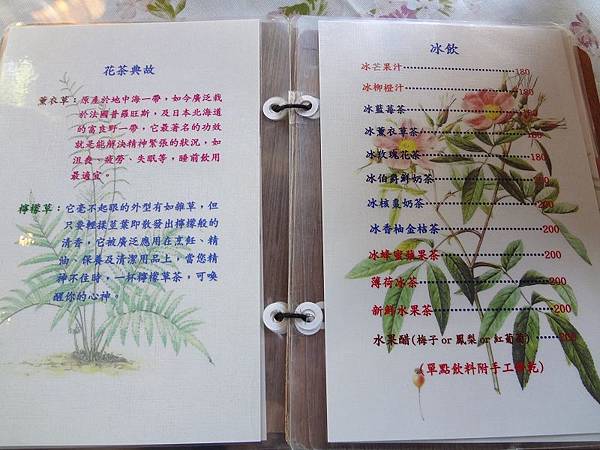 花茶典故
薰衣草：原產於地中海一帶，如今廣泛栽
於法國普羅旺斯，及日本北海道
的富良野一帶，它最著名的功效
就是能解決精神緊張的狀況，如
沮喪、疲勞、失眠等，睡前飲用
最適宜。
檸檬草：它毫不起眼的外型有如雜草，但
只要輕揉莖葉即散發出檸檬般的
清香，它被廣泛應用在烹飪、精
油、保養及清潔用品上，當您精
神不佳時，一杯檸檬草茶，可喚
醒你的心神。
冰飲
冰芒果汁 180
冰柳橙汁 180
冰藍莓茶 180
冰薰衣草茶 180
冰玫瑰花茶 180
冰伯爵鮮奶茶 180
冰核棗奶茶 200
冰香柚金桔茶 200
冰蜂蜜蘋果茶 200
薄荷冰茶 200
新鮮水果茶 200
水果醋(梅子or鳳梨or紅葡萄) 200
(單點飲料附手工餅乾)